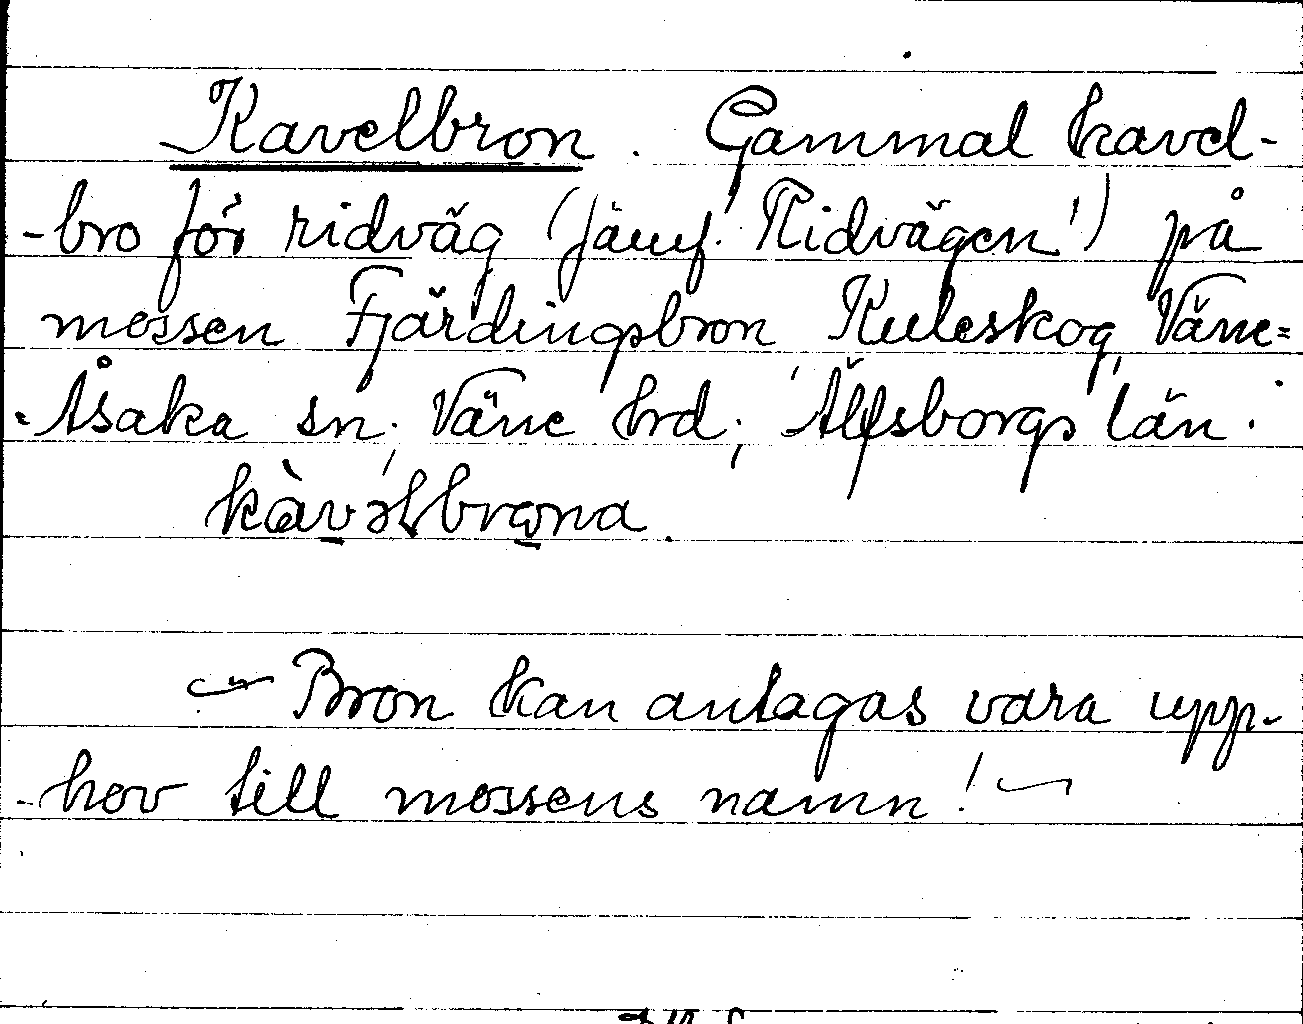 Kavelbron. Gammal kavel-
-bro för ridväg (jämf. 'Ridvägen') på
mossen Fjärdingsbron, Kuleskog, Väne-
-Åsaka sn; Väne hrd; Älfsborgs län.
kàvəlbrona.
— Bron kan antagas vara upp-
-hov till mossens namn! —